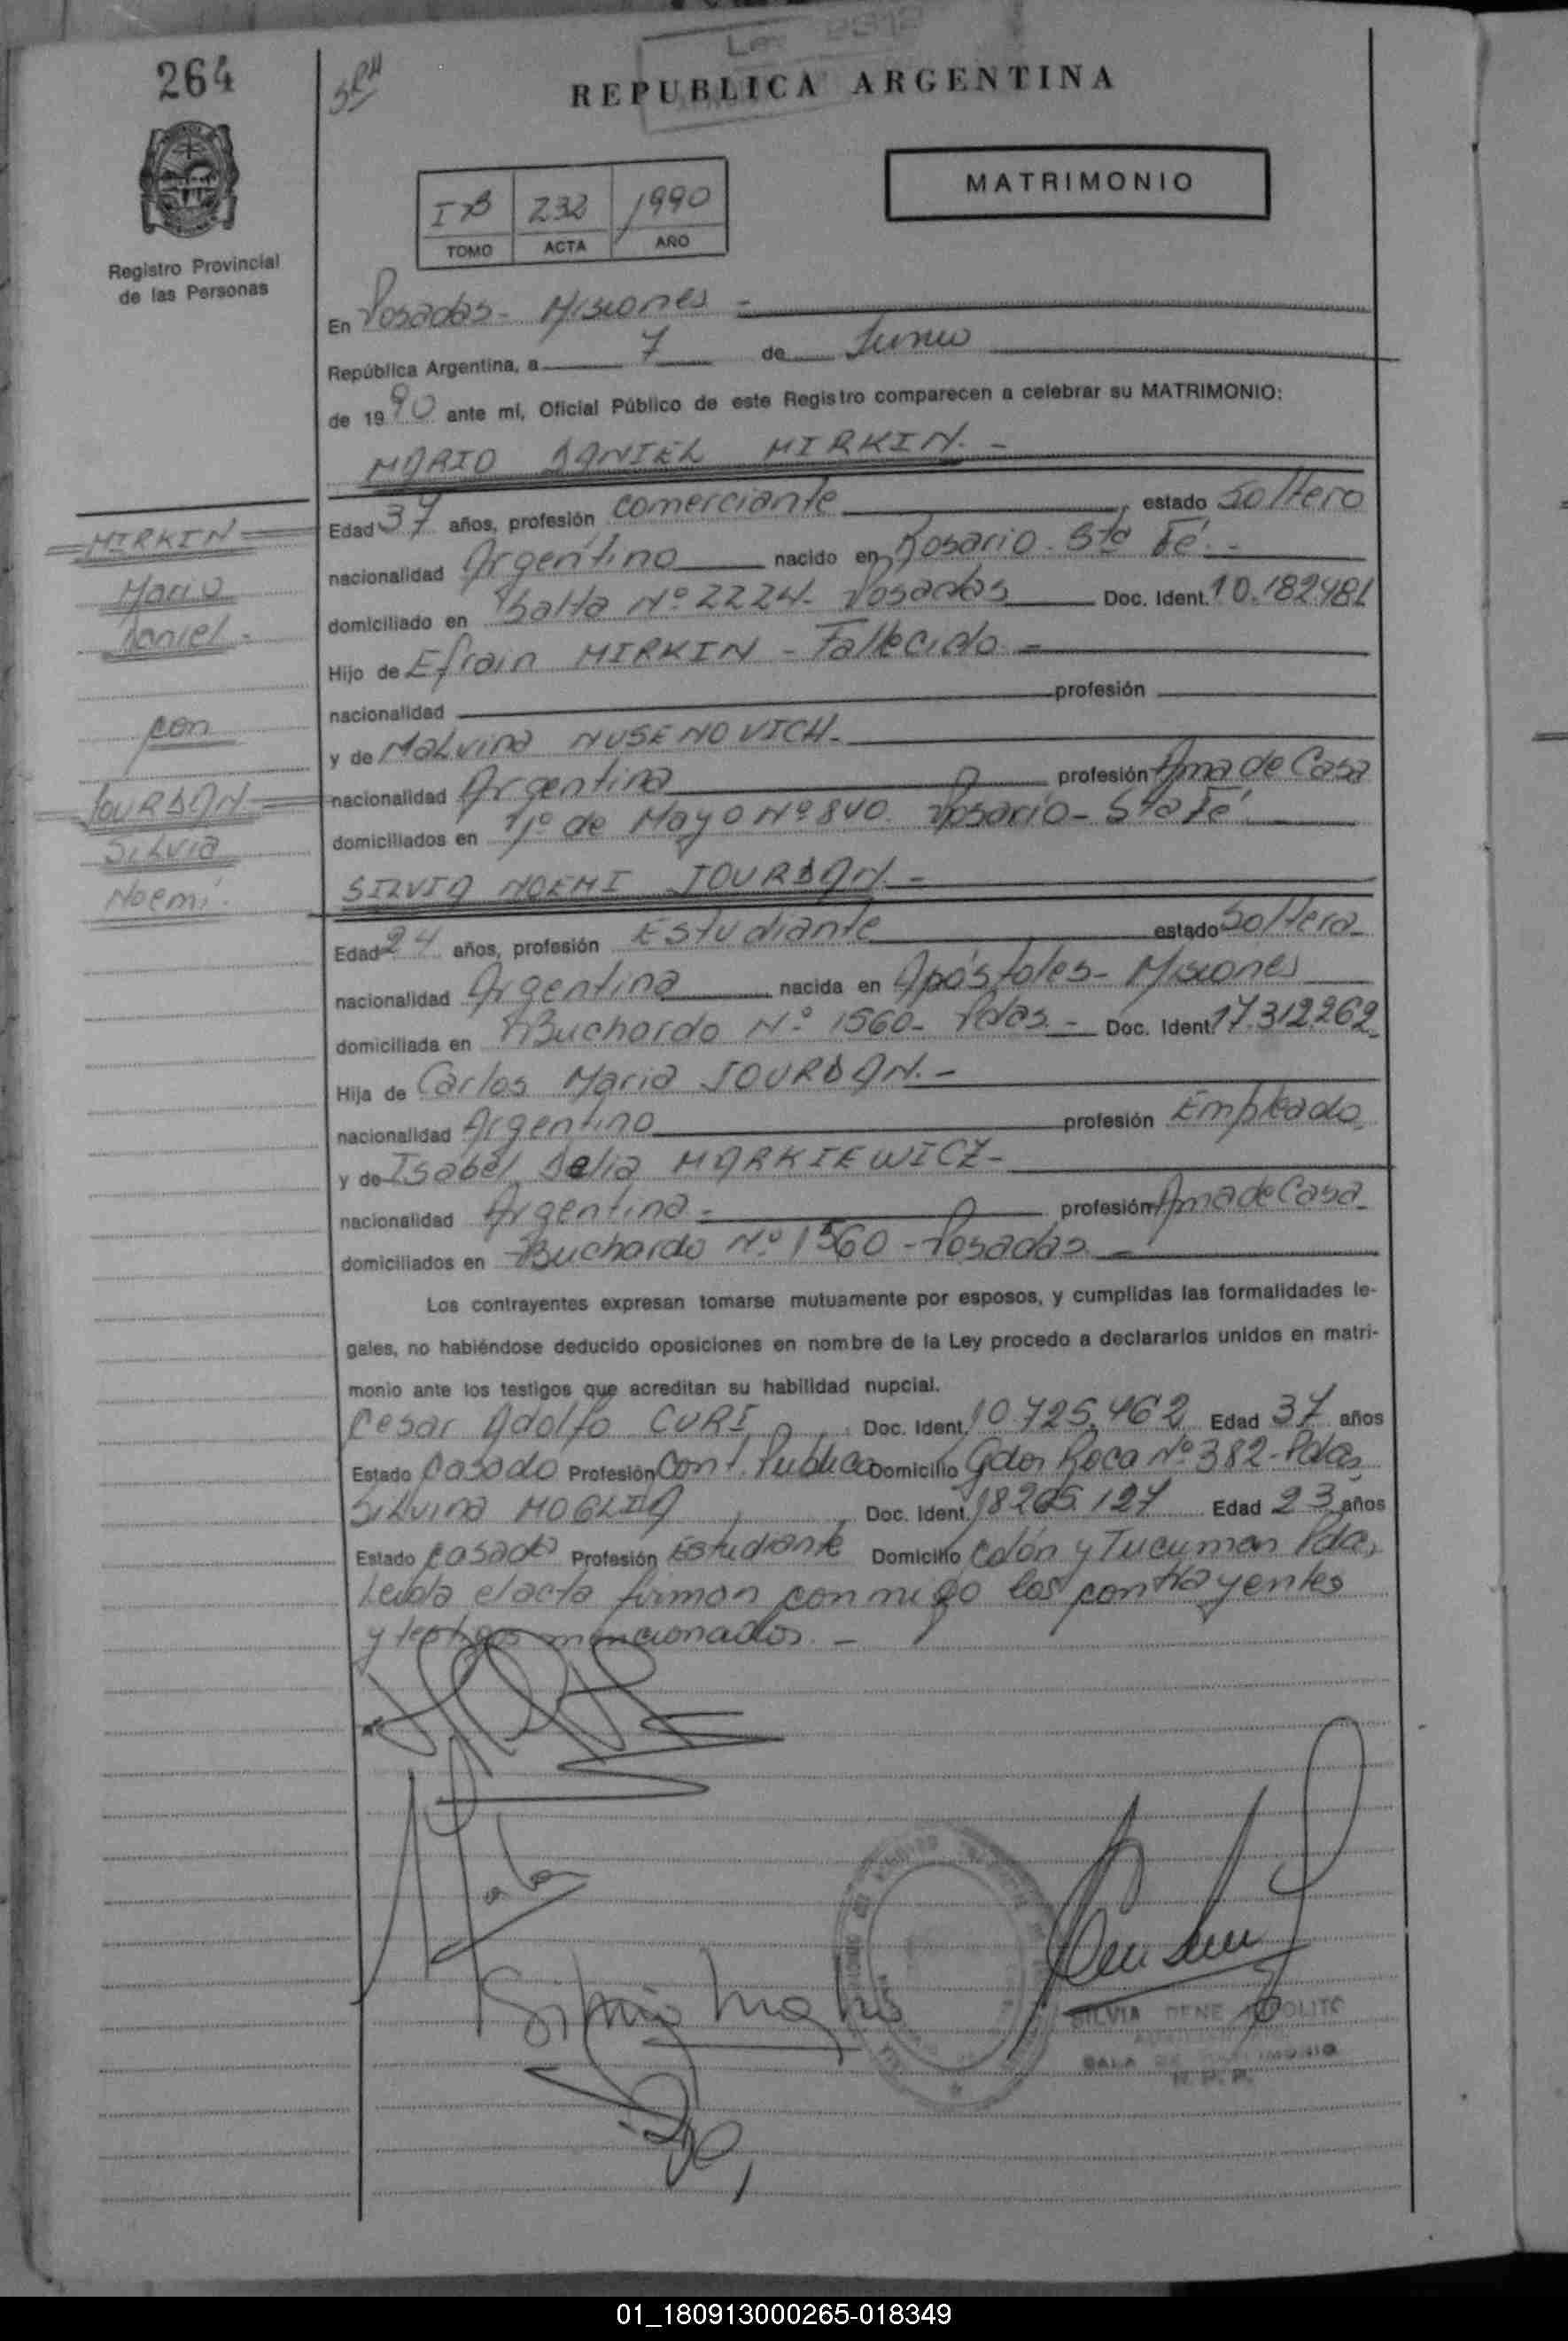 264
REPUBLICA ARGENTINA
MATRIMONIO
232 1990
TOMO ACTA AÑO
Registro Provincial
de las Personas
En Posadas - Misiones -
República Argentina, a 7 de Junio
de 1990 ante mí, Oficial Público de este Registro comparecen a celebrar su MATRIMONIO:
MARIO DANIEL MIRKIN. -
Edad 37 años, profesión comerciante, estado Soltero
nacionalidad Argentino nacido en Rosario - Sta Fé. -
domiciliado en Salta Nº 2224 - Posadas Doc. Ident. 10.182.481
Hijo de Efrain MIRKIN - Fallecido -
nacionalidad profesión
y de Malvina NUSENOVICH. -
nacionalidad Argentina profesión Ama de Casa
domiciliados en 1º de Mayo Nº 840. Rosario - Sta Fé.
SILVIA NOEMI JOURDAN. -
Edad 24 años, profesión Estudiante estado Soltera
nacionalidad Argentina nacida en Apóstoles - Misiones
domiciliada en Buchardo Nº 1560 - Pdas. - Doc. Ident. 17.312.262
Hija de Carlos Maria JOURDAN. -
nacionalidad Argentino profesión Empleado
y de Isabel Delia MARKIEWICZ -
nacionalidad Argentina - profesión Ama de Casa
domiciliados en Buchardo Nº 1560 - Posadas -
Los contrayentes expresan tomarse mutuamente por esposos, y cumplidas las formalidades le-
gales, no habiéndose deducido oposiciones en nombre de la Ley procedo a declararlos unidos en matri-
monio ante los testigos que acreditan su habilidad nupcial.
Cesar Adolfo CURI Doc. Ident. 10.725.462 Edad 37 años
Estado Casado Profesión Cont. Publico Domicilio Gdor Roca Nº 382 - Pdas
Silvina MOGLIA Doc. Ident. 18265.127 Edad 23 años
Estado casada Profesión Estudiante Domicilio Colón y Tucuman Pdas
Leida el acta firman conmigo los contrayentes
y testigos mencionados. -
MIRKIN
Mario
Daniel -
con
JOURDAN
Silvia
Noemi -
SILVIA
SALA
R. P. P.
01_180913000265-018349